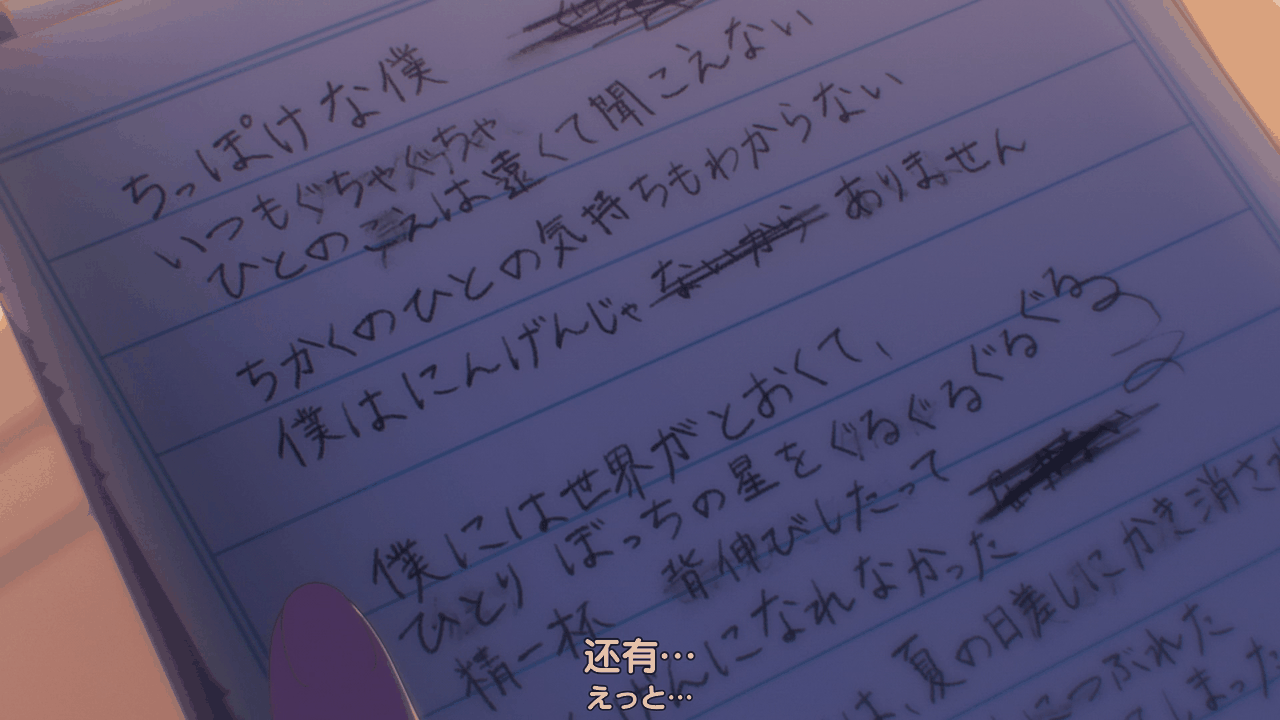 ちっぽけな僕
いつもぐちゃぐちゃ
ひとのこえは遠くて聞こえない
ちかくのひとの気持ちもわからない
僕はにんげんじゃないから ありません
僕には世界がとおくて、
ひとり ぼっちの星をぐるぐるぐるぐる
精一杯 背伸びしたって
んになれなかった
は、夏の日差しにかき消され
につぶれた
てしまった
还有…
えっと…